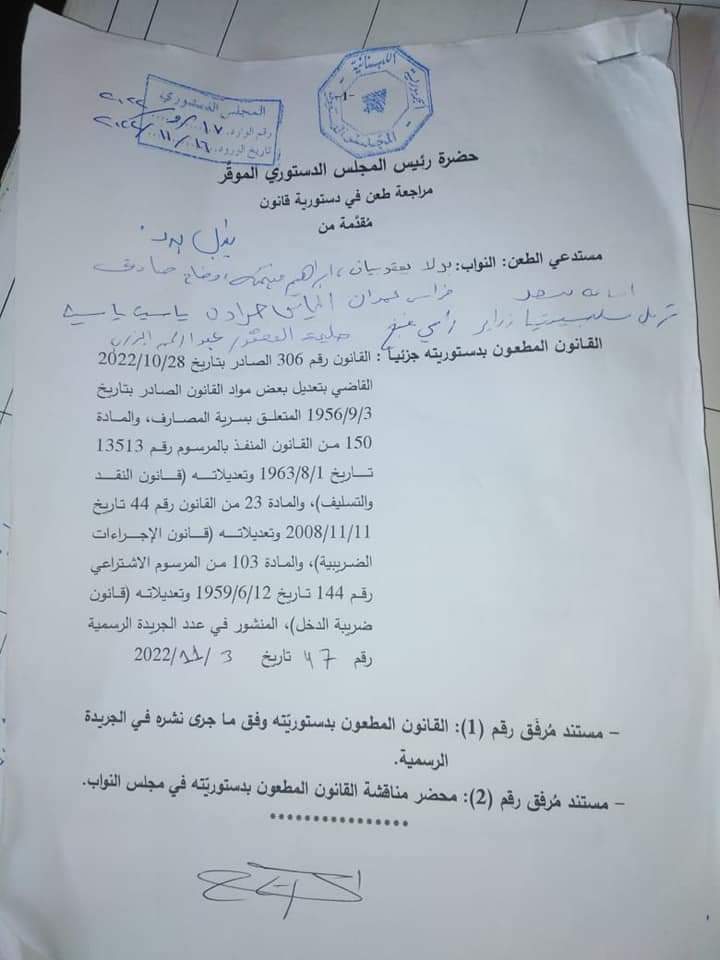 الجمهورية اللبنانية
-١-
المجلس الدستوري
المجلس الدستوري
رقم الوارد: ١٧/و/٢٠٢٢
تاريخ الورود: ١٦/١١/٢٠٢٢
حضرة رئيس المجلس الدستوري الموقّر
مراجعة طعن في دستورية قانون
مُقدَّمة من
مستدعي الطعن: النواب: بولا يعقوبيان، ابراهيم منيمنة، وضاح صادق
اسامة سعد فراس حمدان الياس جرادي ياسين ياسين
سينتيا زرازير رامي فنج حليمة القعقور عبد الرحمن البزري
القانون المطعون بدستوريته جزئياً : القانون رقم 306 الصادر بتاريخ 2022/10/28
القاضي بتعديل بعض مواد القانون الصادر بتاريخ
1956/9/3 المتعلق بسرية المصارف، والمادة
150 من القانون المنفذ بالمرسوم رقم 13513
تاريخ 1963/8/1 وتعديلاته (قانون النقد
والتسليف)، والمادة 23 من القانون رقم 44 تاريخ
2008/11/11 وتعديلاته (قانون الإجراءات
الضريبية)، والمادة 103 من المرسوم الاشتراعي
رقم 144 تاريخ 1959/6/12 وتعديلاته (قانون
ضريبة الدخل)، المنشور في عدد الجريدة الرسمية
رقم 47 تاريخ 3 /11/ 2022
– مستند مُرفَق رقم (1): القانون المطعون بدستوريّته وفق ما جرى نشره في الجريدة
الرسمية.
– مستند مُرفق رقم (2): محضر مناقشة القانون المطعون بدستوريّته في مجلس النواب.